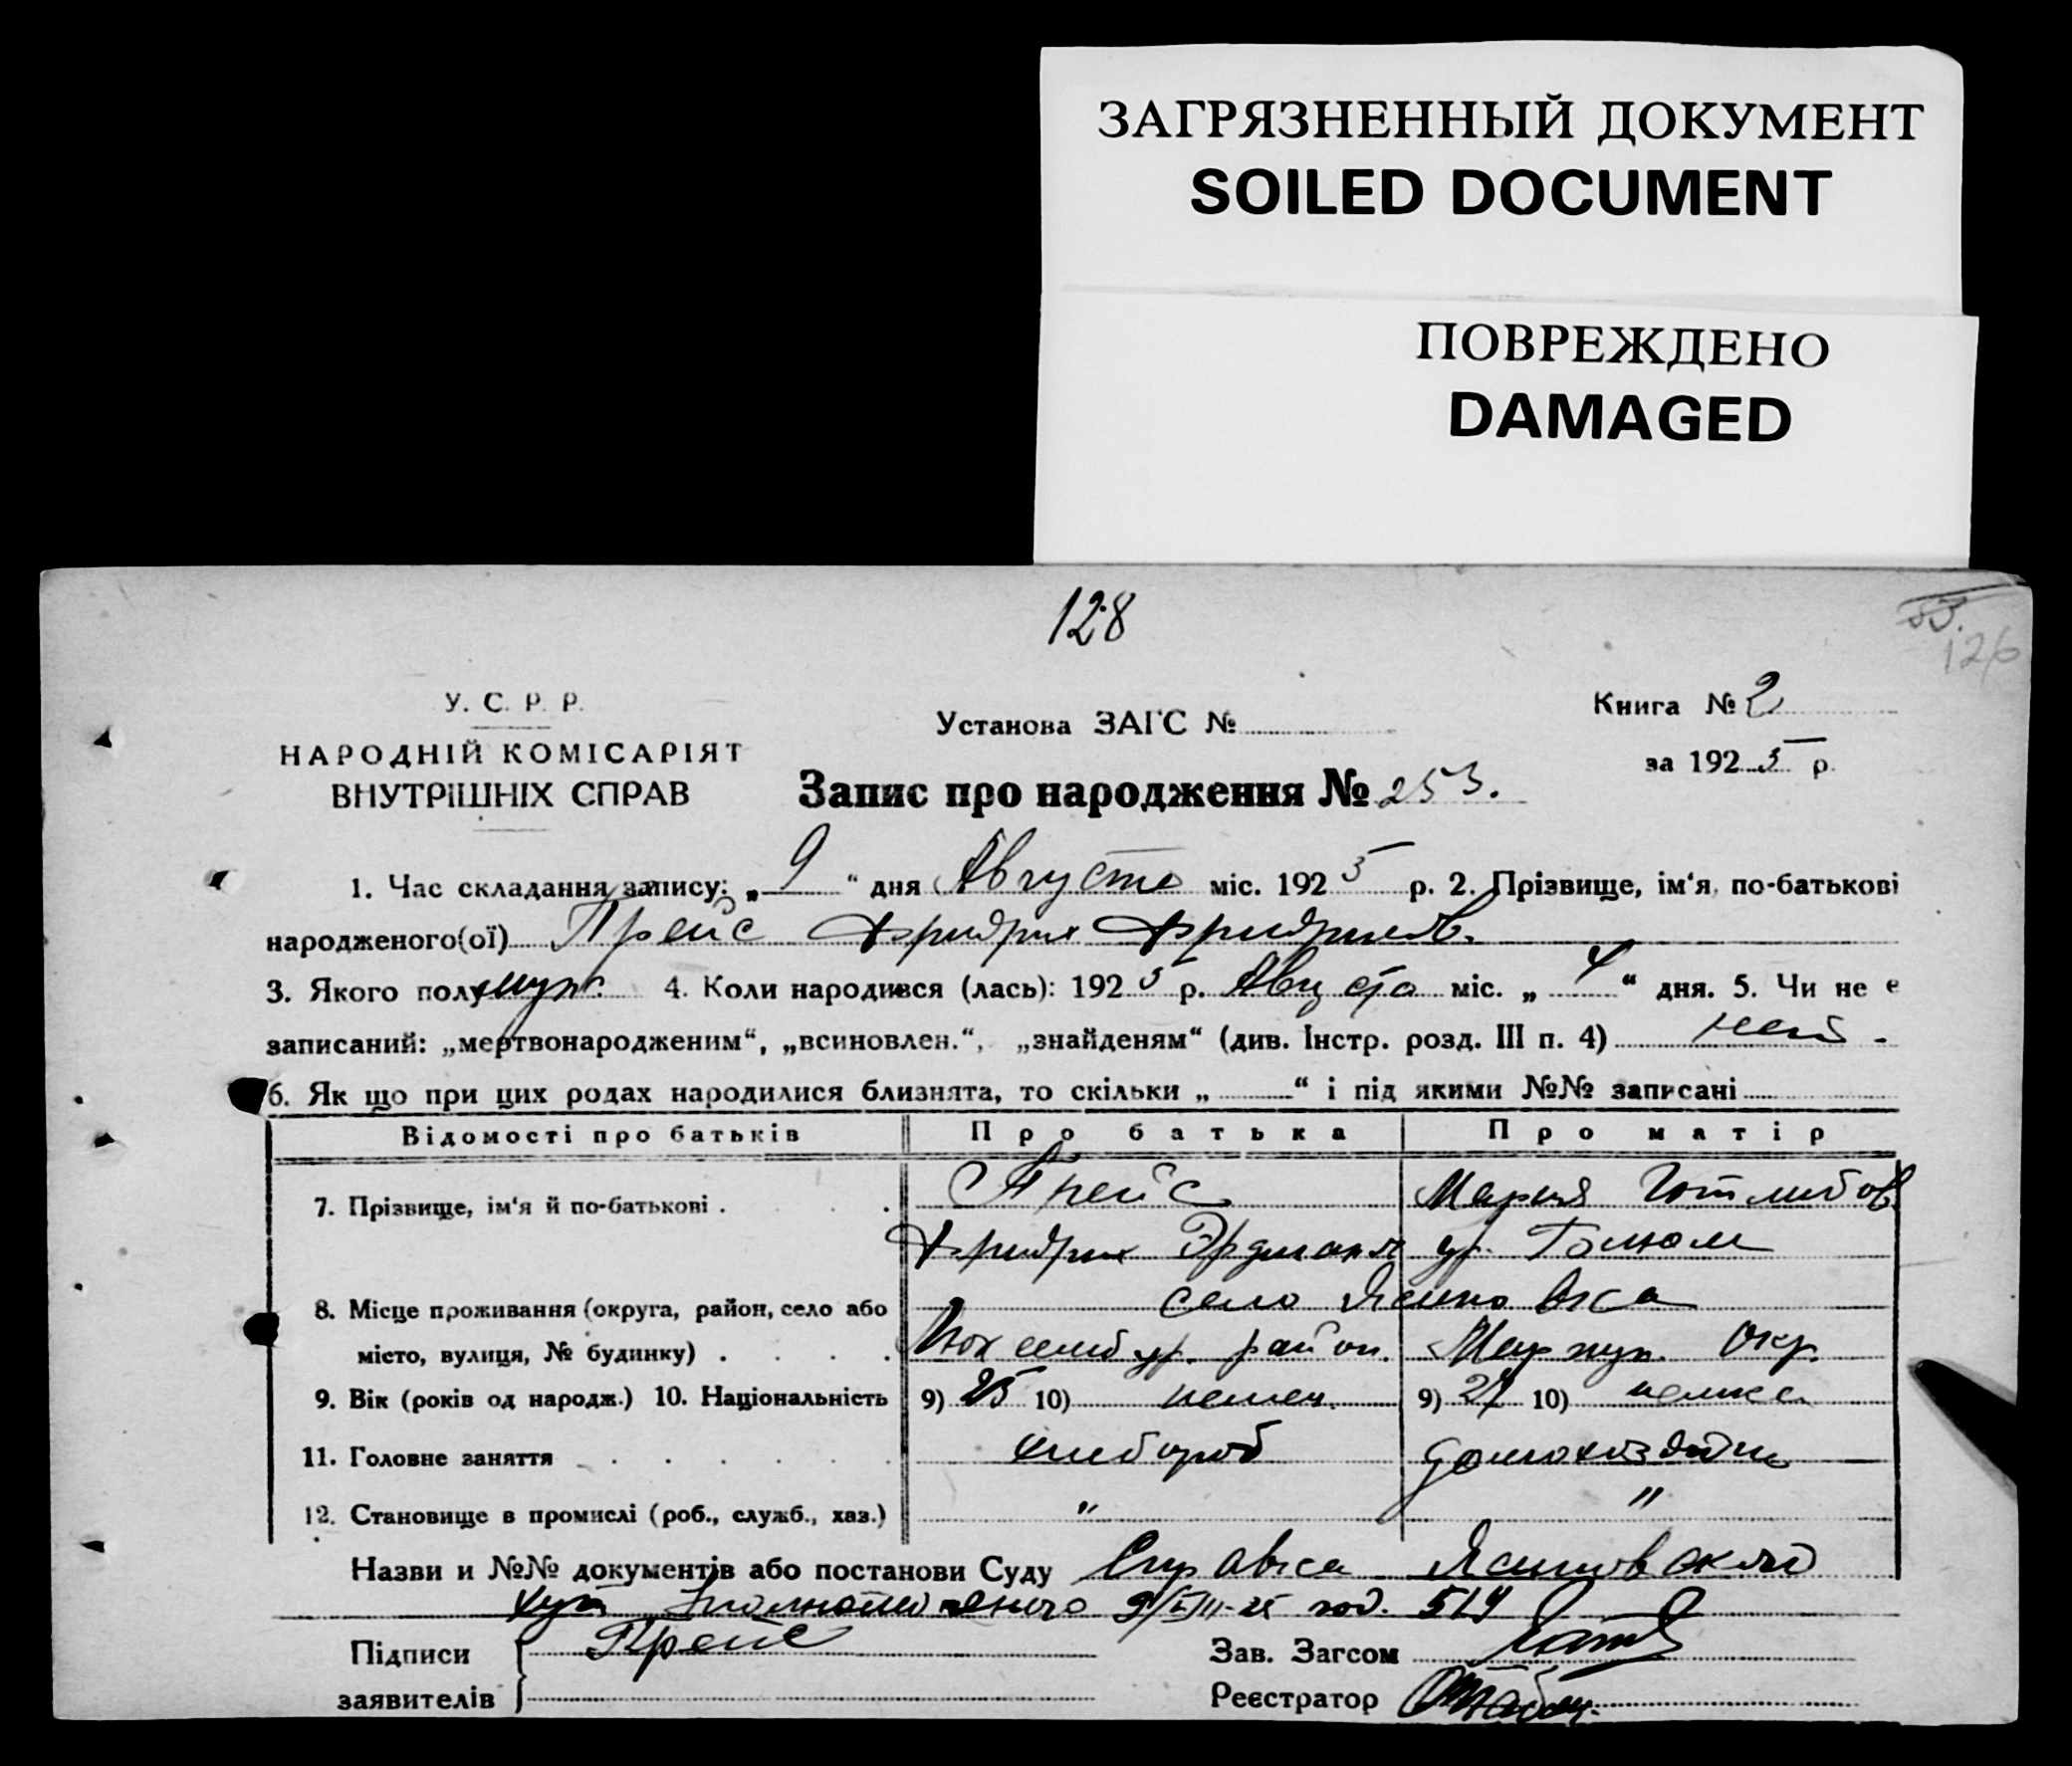 ЗАГРЯЗНЕННЫЙ ДОКУМЕНТ
SOILED DOCUMENT
ПОВРЕЖДЕНО
DAMAGED
128
53.
126
У. С. Р. Р.
НАРОДНІЙ КОМІСАРІЯТ
ВНУТРІШНІХ СПРАВ
Установа ЗАГС №
Книга № 2
за 1925 р.
Запис про народження № 253.
1. Час складання запису: „ 9 “ дня Августа міс. 1925 р. 2. Прізвище, ім'я, по-батькові
народженого(ої) Прейс Фридрих Фридрихов.
3. Якого полу муж. 4. Коли народився (лась): 1925 р. Августа міс. „ 4 “ дня. 5. Чи не є
записаний: „мертвонародженим“, „всиновлен.“, „знайденям“ (див. Інстр. розд. III п. 4) нет -
6. Як що при цих родах народилися близнята, то скільки „ “ і під якими №№ записані
Відомості про батьків Про батька Про матір
7. Прізвище, ім'я й по-батькові . Прейс Мария Готлибов
Фридрих Эрдман ур.
8. Місце проживання (округа, район, село або село Ясиновка
місто, вулиця, № будинку) . Люксембур. район. Мариуп. Окр.
9. Вік (років од народж.) 10. Національність 9) 25 10) немец. 9) 24 10) немка
11. Головне заняття хлебороб домохозяйка
12. Становище в промислі (роб., служб., хаз.) " "
Назви и №№ документів або постанови Суду Справка Ясиновского
хут Уполномоченного 9/VIII-25 год. 514
Підписи Прейс Зав. Загсом
заявителів Реєстратор